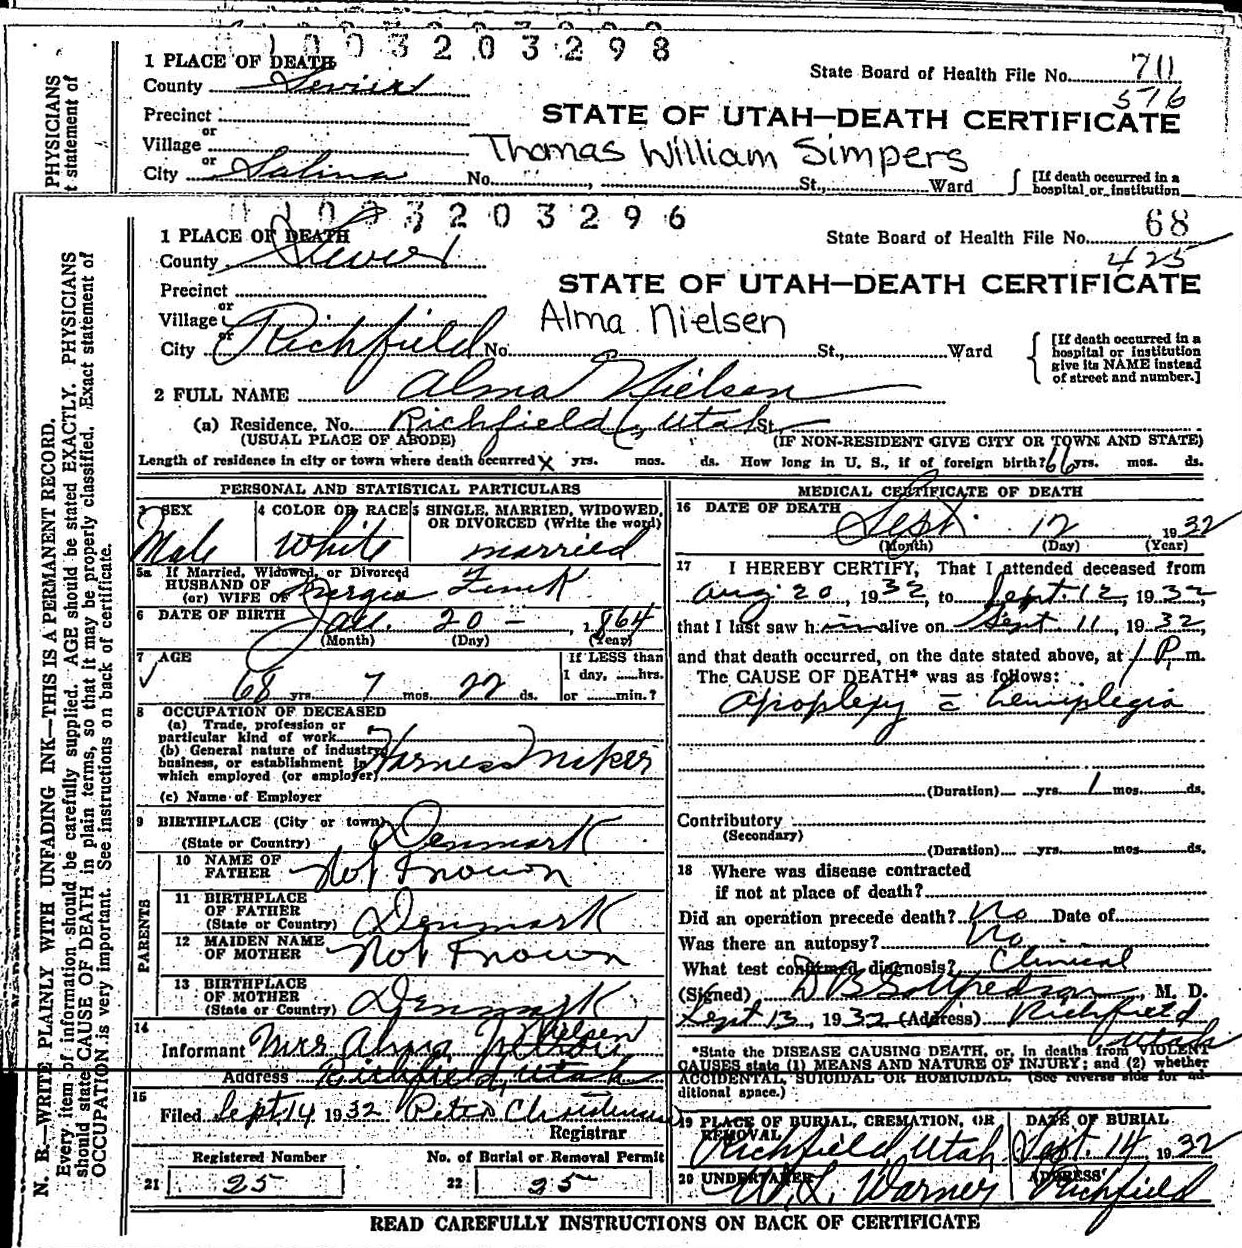 1003203298
1 PLACE OF DEATH
County Sevier
State Board of Health File No. 70
576
Precinct
STATE OF UTAH—DEATH CERTIFICATE
or
Village
Thomas William Simpers
or
City Salina No. , St., Ward
[If death occurred in a
hospital or institution
PHYSICIANS
t statement of
1003203296
1 PLACE OF DEATH
County Sevier
State Board of Health File No. 68
425
Precinct
STATE OF UTAH—DEATH CERTIFICATE
or
Village
Alma Nielsen
or
City Richfield No St., Ward
[If death occurred in a
hospital or institution
give its NAME instead
of street and number.]
2 FULL NAME Alma Nielsen
(a) Residence. No. Richfield, Utah St.
(USUAL PLACE OF ABODE) (IF NON-RESIDENT GIVE CITY OR TOWN AND STATE)
Length of residence in city or town where death occurred x yrs. mos. ds. How long in U. S., if of foreign birth? 66 yrs. mos. ds.
PERSONAL AND STATISTICAL PARTICULARS
3 SEX
Male
4 COLOR OR RACE
White
5 SINGLE, MARRIED, WIDOWED,
OR DIVORCED (Write the word)
married
5a If Married, Widowed, or Divorced
HUSBAND OF
(or) WIFE OF
6 DATE OF BIRTH Jan. 20 - 1864
(Month) (Day) (Year)
7 AGE
68 yrs. 7 mos. 22 ds.
If LESS than
1 day, hrs.
or min.?
8 OCCUPATION OF DECEASED
(a) Trade, profession or
particular kind of work
(b) General nature of industry
business, or establishment in
which employed (or employer)
Harness Maker
(c) Name of Employer
9 BIRTHPLACE (City or town)
(State or Country) Denmark
PARENTS
10 NAME OF
FATHER Not Known
11 BIRTHPLACE
OF FATHER
(State or Country) Denmark
12 MAIDEN NAME
OF MOTHER Not Known
13 BIRTHPLACE
OF MOTHER
(State or Country) Denmark
14
Informant Mrs Alma Nielsen
Address Richfield, Utah
15
Filed Sept 14 1932 Peter Christensen
Registrar
Registered Number
21 25
No. of Burial or Removal Permit
22 25
MEDICAL CERTIFICATE OF DEATH
16 DATE OF DEATH
Sept. 12 1932
(Month) (Day) (Year)
17 I HEREBY CERTIFY, That I attended deceased from
Aug 20, 1932, to Sept. 12, 1932,
that I last saw him alive on Sept. 11, 1932,
and that death occurred, on the date stated above, at 1 P. m.
The CAUSE OF DEATH* was as follows:
Apoplexy c̄ hemiplegia
(Duration) yrs. 1 mos. ds.
Contributory
(Secondary)
(Duration) yrs. mos. ds.
18 Where was disease contracted
if not at place of death?
Did an operation precede death? No Date of
Was there an autopsy? No
What test confirmed diagnosis? Clinical
(Signed) D B Gottfredson, M. D.
Sept 13, 1932 (Address) Richfield
Utah
*State the DISEASE CAUSING DEATH, or, in deaths from VIOLENT
CAUSES state (1) MEANS AND NATURE OF INJURY; and (2) whether
ACCIDENTAL, SUICIDAL OR HOMICIDAL. (See reverse side for ad-
ditional space.)
19 PLACE OF BURIAL, CREMATION, OR
REMOVAL
Richfield Utah
DATE OF BURIAL
Sept. 14 1932
20 UNDERTAKER
W. L. Warner
ADDRESS
Richfield
READ CAREFULLY INSTRUCTIONS ON BACK OF CERTIFICATE
N. B.—WRITE PLAINLY WITH UNFADING INK—THIS IS A PERMANENT RECORD.
Every item of information should be carefully supplied. AGE should be stated EXACTLY. PHYSICIANS
should state CAUSE OF DEATH in plain terms, so that it may be properly classified. Exact statement of
OCCUPATION is very important. See instructions on back of certificate.